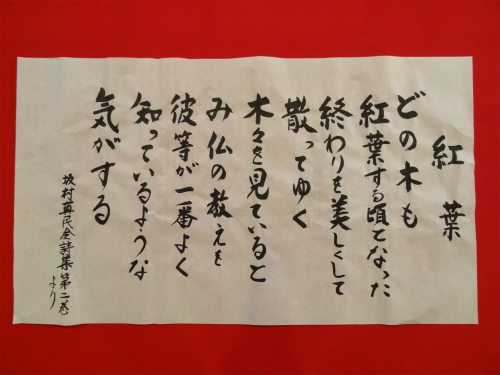 紅葉
どの木も
紅葉する頃となった
終わりを美しくして
散ってゆく
木々を見ていると
み仏の教えを
彼等が一番よく
知っているような
気がする
坂村真民全詩集第二巻
より